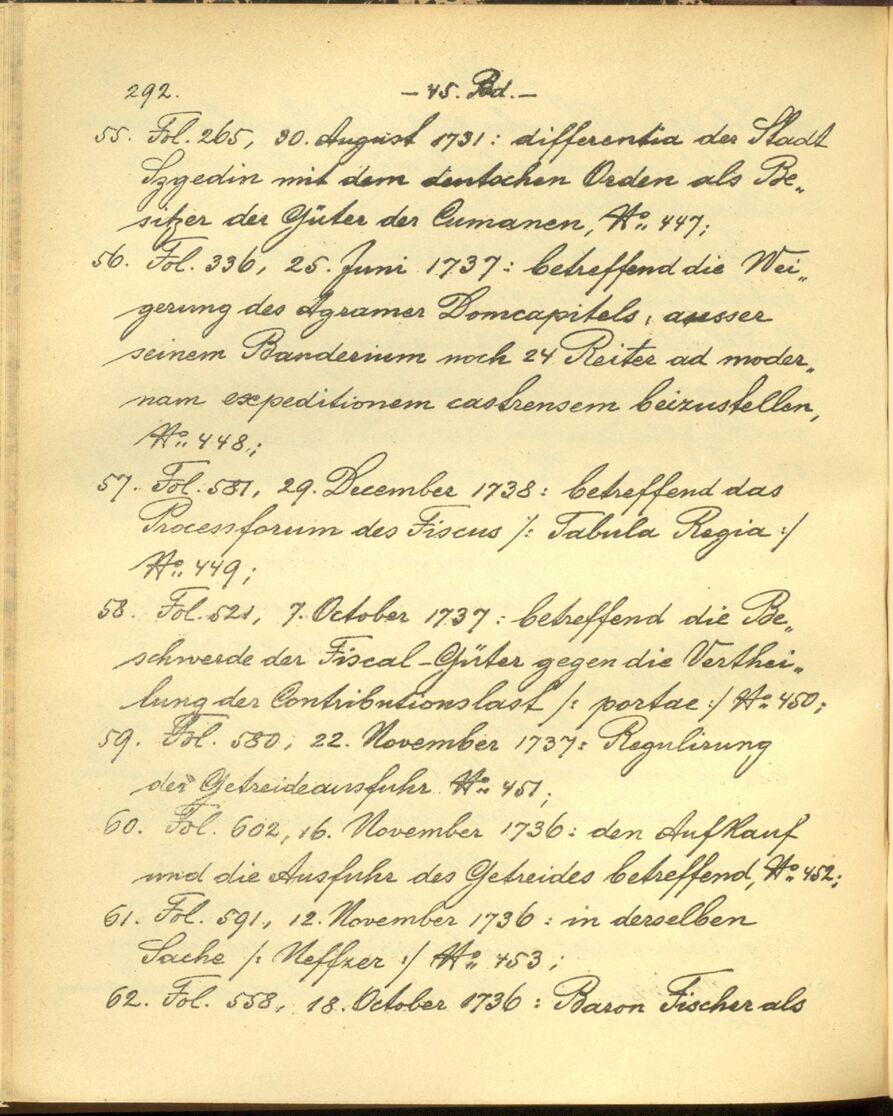 292. – 45. Bd. –
55. Fol. 265, 30. August 1731: differentia der Stadt
Szgedin mit dem deutschen Orden als Be„
sitzer der Güter der Cumanen, No: 447;
56. Fol. 336, 25. Juni 1737: betreffend die Wei„
gerung des Agramer Domcapitels, ausser
seinem Banderium noch 24 Reiter ad moder„
nam expeditionem castrensem beizustellen,
No: 448;
57. Fol. 581, 29. December 1738: betreffend das
Processforum des Fiscus /: Tabula Regia :/
No: 449;
58. Fol. 521, 7. October 1737: betreffend die Be„
schwerde der Fiscal-Güter gegen die Verthei„
lung der Contributionslast /: portae :/ No: 450;
59. Fol. 580, 22. November 1737: Regulirung
der Getreideausfuhr No: 451;
60. Fol. 602, 16. November 1736: den Aufkauf
und die Ausfuhr des Getreides betreffend, No: 452;
61. Fol. 591, 12. November 1736: in derselben
Sache /: Neffzer :/ No: 453;
62. Fol. 558, 18. October 1736: Baron Fischer als